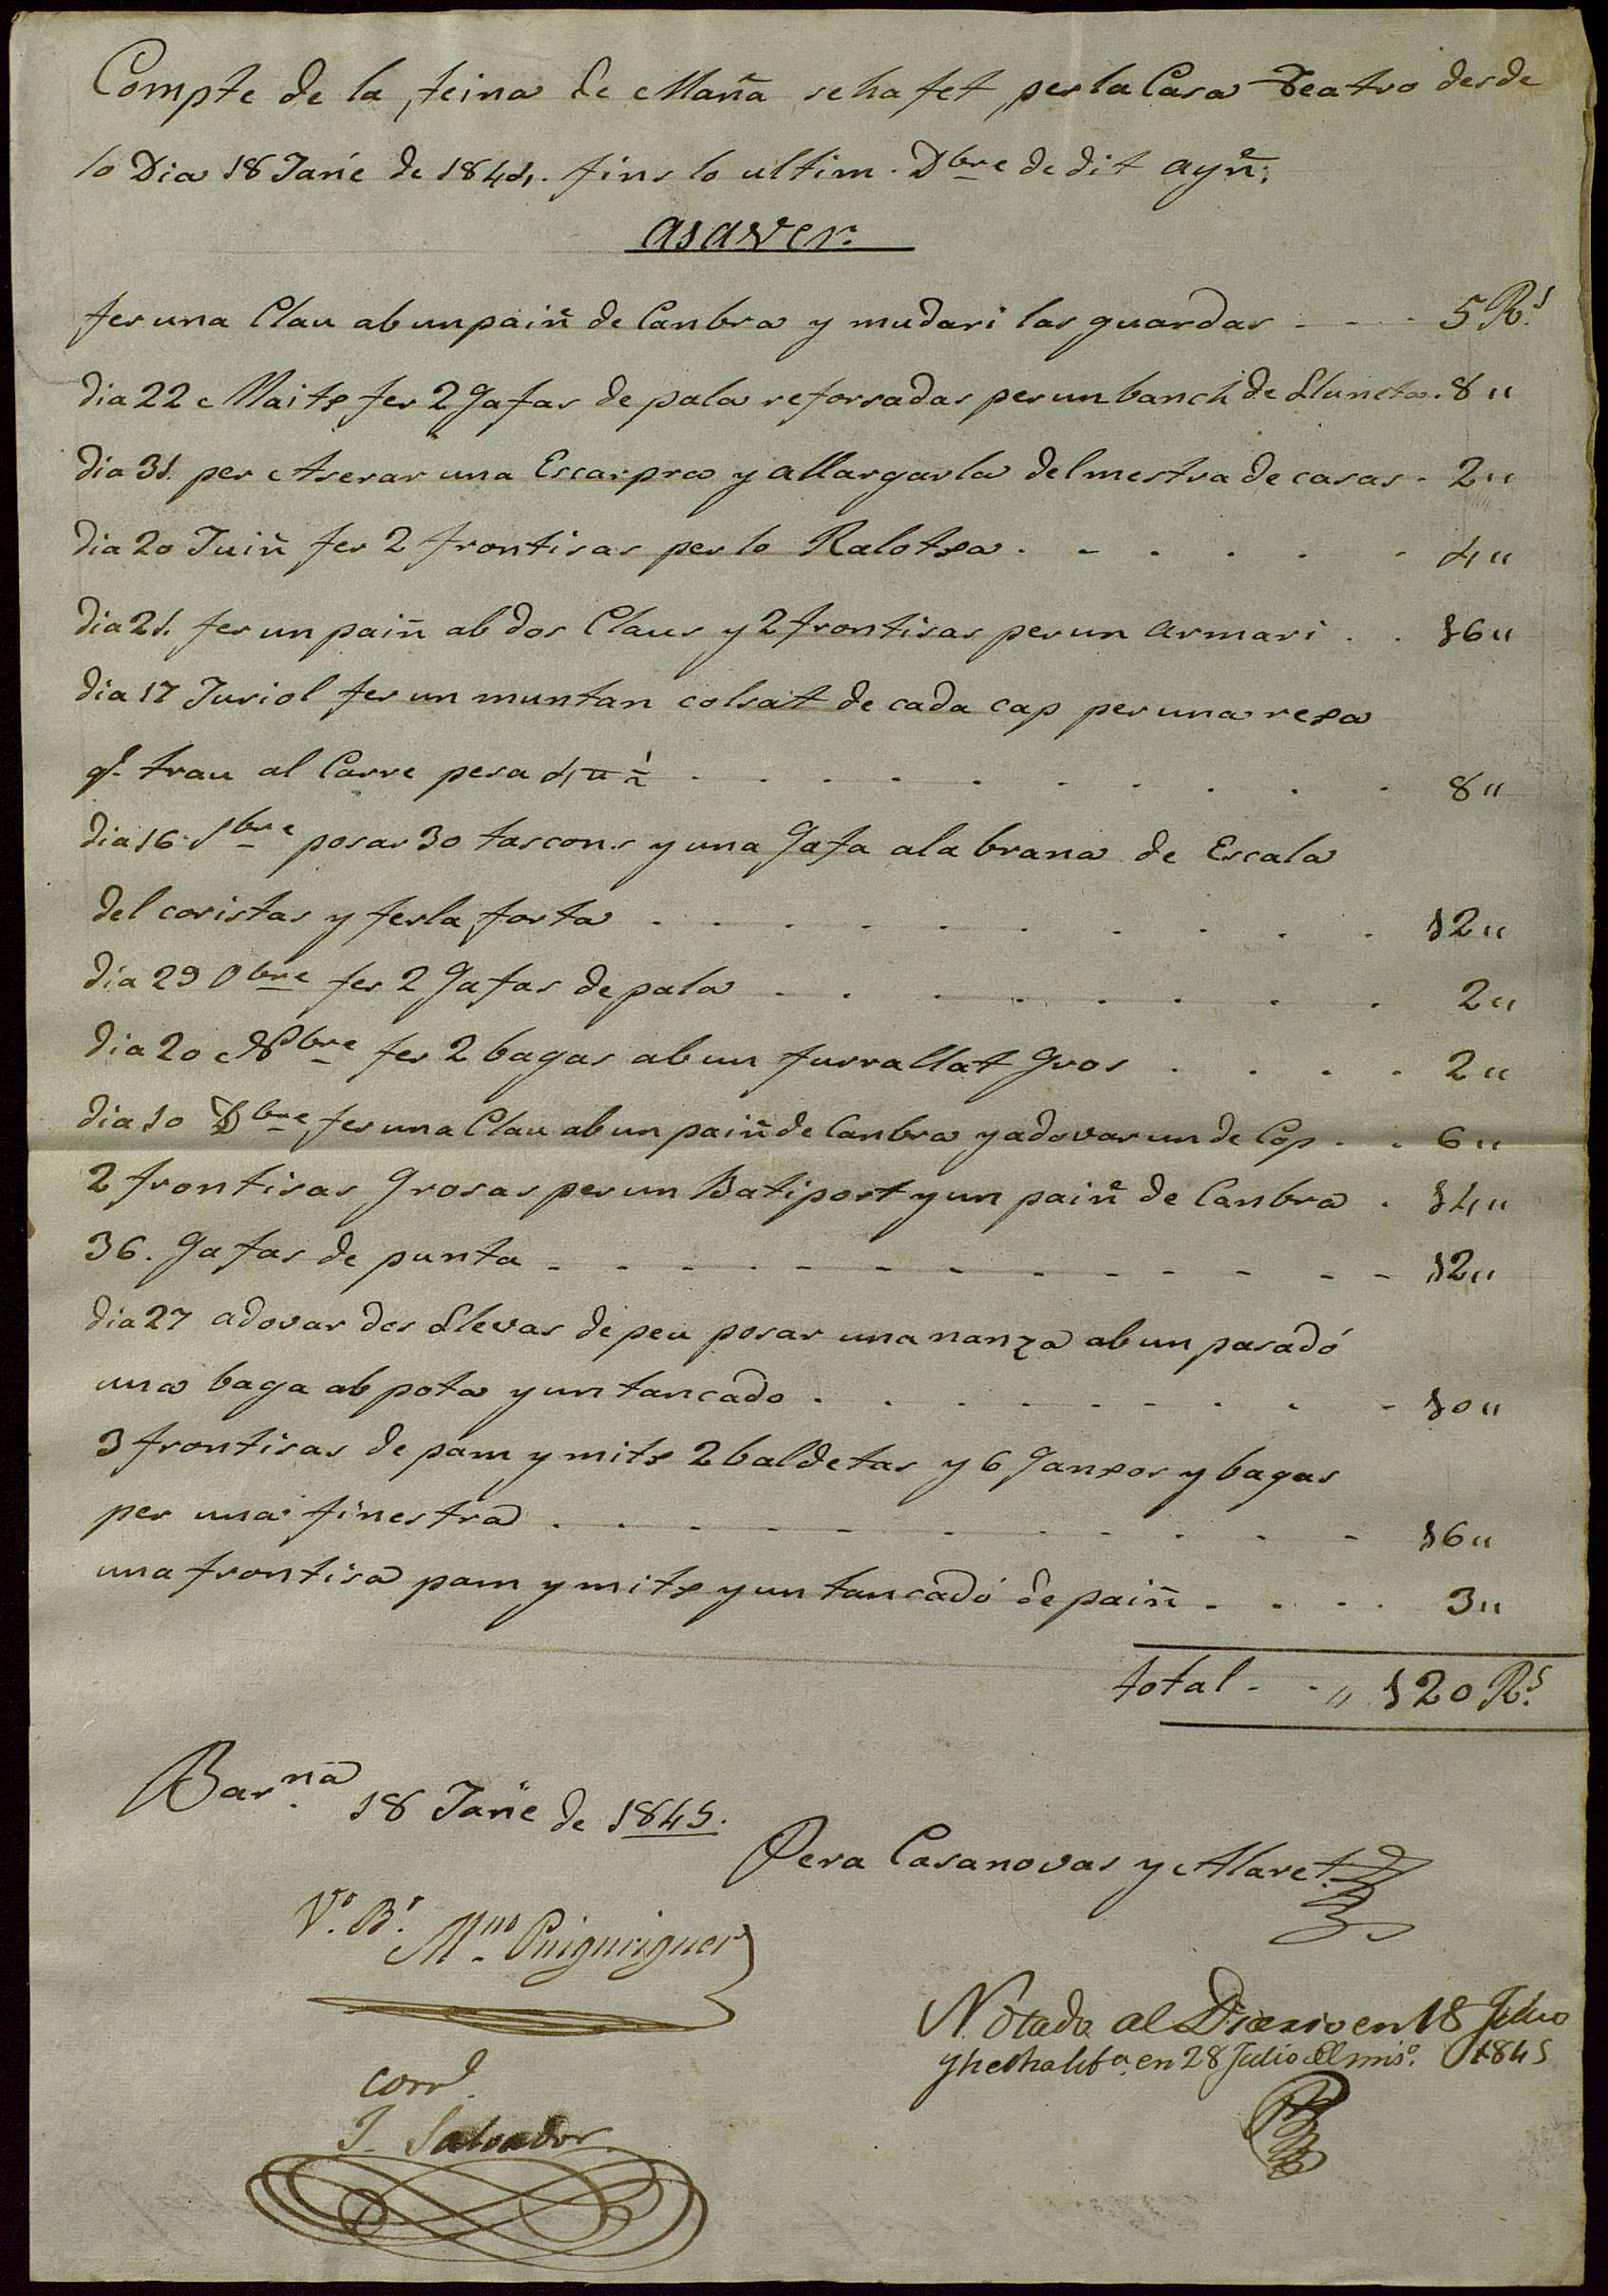 Compte de la feina de Mañá seha fet per la Casa Teatro desde
lo Dia 18 Jañe de 1844. fins lo ultim. Dbre de dit ayñ:
asaver.
fer una Clau ab un paiñ de Canbra y mudari las guardas - - - 5 Rs.
dia 22 Maitx fer 2 Gafas de pala reforsadas per un banch de Lluneta. 8 "
dia 31. per Aserar una Escarpra y allargarla del mestra de casas - 2 "
dia 20 Juiñ fer 2 frontisas per lo Ralotxa . - . . . - 4 "
dia 21. fer un paiñ ab dos Claus y 2 frontisas per un armari . . 16 "
dia 17 Juriol fer un muntan colsat de cada cap per una rexa
qe. trau al Carre pesa 4 ½ . . . . . . . . . 8 "
dia 16 Sbre posar 30 tascons y una Gafa a la brana de Escala
del coristas y ferla forta . . . . . . . . . 12 "
dia 29 Obre fer 2 Gafas de pala . . . . . . . . 2 "
dia 20 Nbre fer 2 bagas ab un furrallat Gros . . . . 2 "
dia 10 Dbre fer una Clau ab un paiñ de Canbra y adovar un de Cop . . 6 "
2 frontisas Grosas per un Batiport y un paiñ de Canbra . 14 "
36. Gafas de punta - - - - - - - - - - - - - 12 "
dia 27 adovar dos Llevas de peu posar una nanza ab un pasadó
una baga ab pota y un tancado . . . . . . . . - 10 "
3 frontisas de pam y mitx 2 baldetas y 6 Ganxos y bagas
per una finestra . . . . . . . . . . . - 16 "
una frontisa pam y mitx y un tancadó de paiñ - . . . 3 "
total - - " 120 Rs.
Barna. 18 Jañe de 1845.
Pera Casanovas y Alaret
Vo. Bo. Mno. Puiguriguer
Corrl.
J. Salvador
Notado al Diario en 18 Julio
y hecha lib.a en 28 Julio del miso. 1845